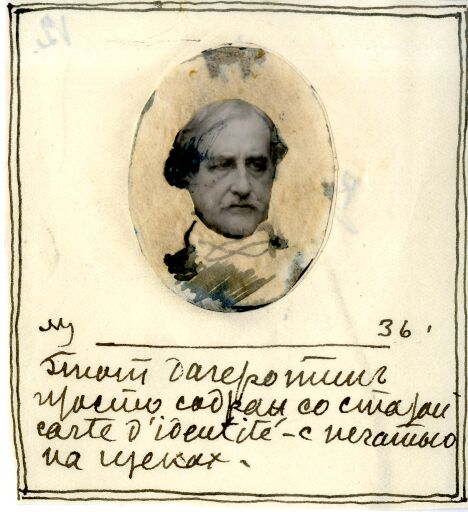 36.
Этот дагеротип
просто содран со старой
carte d'identité - с печатью
на щеках.